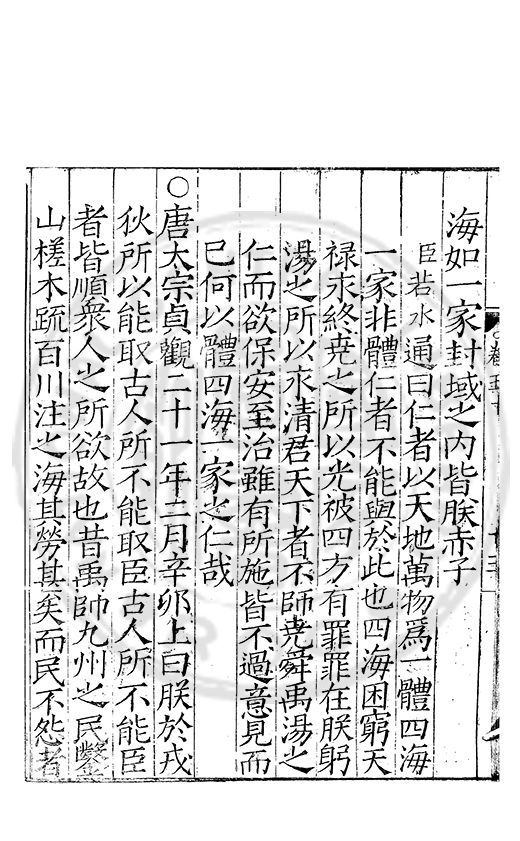 海如一家封域之内皆朕赤子
臣若水通曰仁者以天地萬物爲一體四海
一家非體仁者不能與於此也四海困窮天
禄永終堯之所以光被四方有罪罪在朕躬
湯之所以永清君天下者不師堯舜禹湯之
仁而欲保安至治雖有所施皆不過意見而
已何以體四海一家之仁哉
○唐太宗貞觀二十一年二月辛卯上曰朕於戎
狄所以能取古人所不能取臣古人所不能臣
者皆順衆人之所欲故也昔禹帥九州之民鑿
山槎木䟽百川注之海其勞甚矣而民不怨者